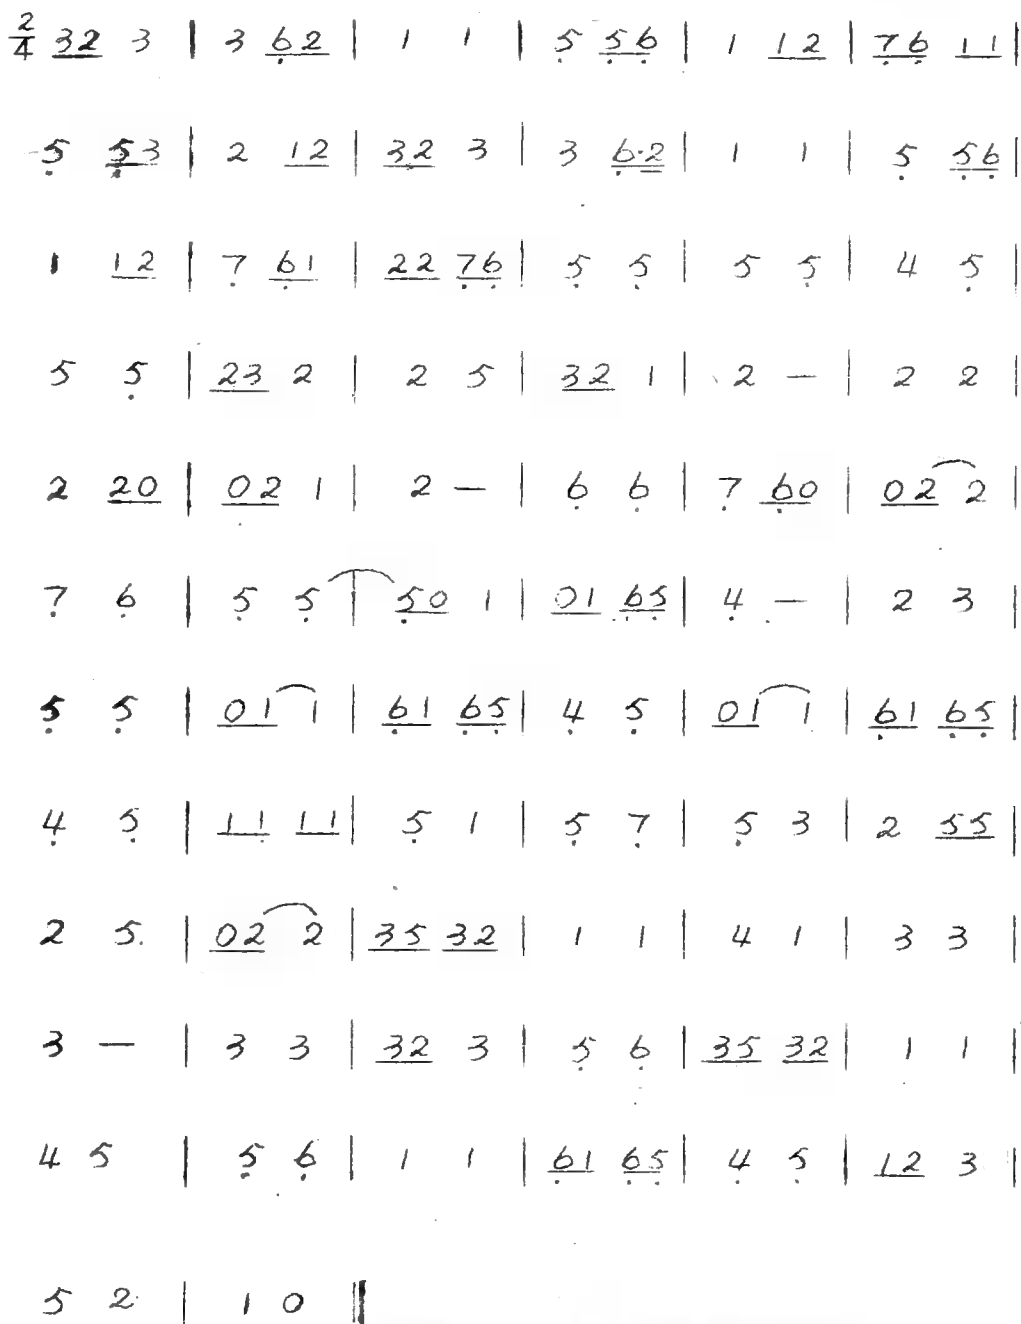 2/4 32 3 | 3 62 | 1 1 | 5 56 | 1 12 | 76 11 |
5 53 | 2 12 | 32 3 | 3 6·2 | 1 1 | 5 56 |
1 12 | 7 61 | 22 76 | 5 5 | 5 5 | 4 5 |
5 5 | 23 2 | 2 5 | 32 1 | 2 — | 2 2 |
2 20 | 02 1 | 2 — | 6 6 | 7 60 | 02 2 |
7 6 | 5 5 | 50 1 | 01 65 | 4 — | 2 3 |
5 5 | 01 1 | 61 65 | 4 5 | 01 1 | 61 65 |
4 5 | 11 11 | 5 1 | 5 7 | 5 3 | 2 55 |
2 5. | 02 2 | 35 32 | 1 1 | 4 1 | 3 3 |
3 — | 3 3 | 32 3 | 5 6 | 35 32 | 1 1 |
4 5 | 5 6 | 1 1 | 61 65 | 4 5 | 12 3 |
5 2 | 1 0 ‖